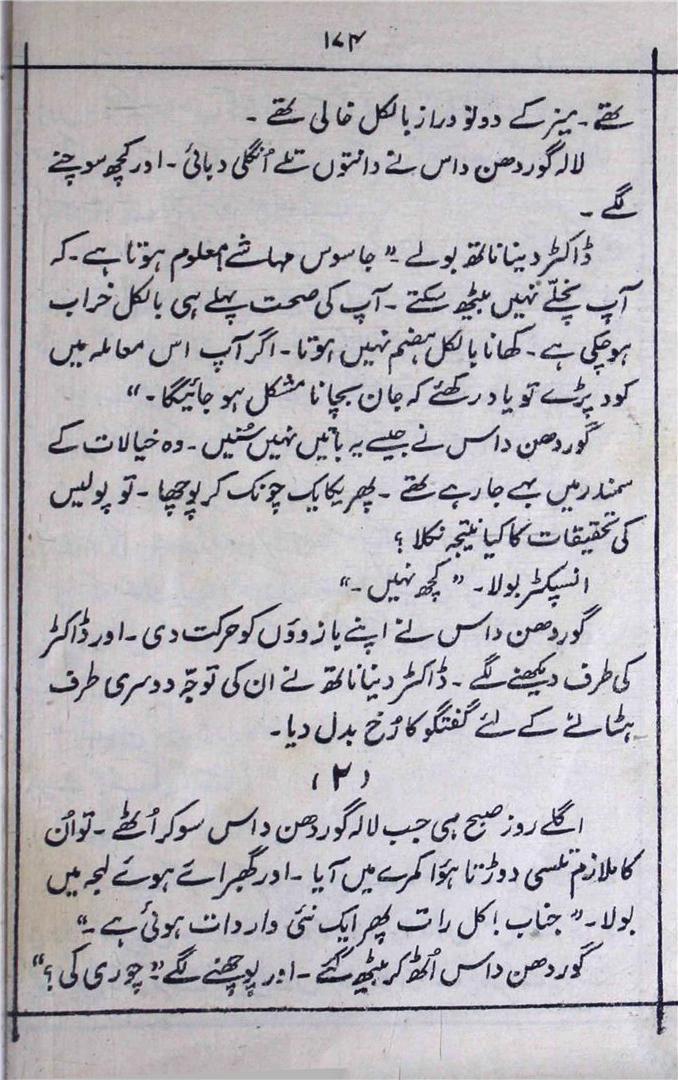 ۱۷۴
تھے۔ میز کے دونو دراز بالکل خالی تھے ۔
لالہ گوردھن داس نے دانتوں تلے اُنگلی دبائی ۔ اور کچھ سوچنے
لگے ۔
ڈاکٹر دینا ناتھ بولے ۔" جاسوس مہاشے! معلوم ہوتا ہے ۔ کہ
آپ نچلّے نہیں بیٹھ سکتے ۔ آپ کی صحت پہلے ہی بالکل خراب
ہو چکی ہے ۔ کھانا بالکل ہضم نہیں ہوتا ۔ اگر آپ اس معاملہ میں
کود پڑے تو یاد رکھئے کہ جان بچانا مشکل ہو جائیگا ۔"
گوردھن داس نے جیسے یہ باتیں نہیں سُنیں ۔ وہ خیالات کے
سمندر میں بہے جا رہے تھے ۔ پھر یکایک چونک کر پوچھا ۔ تو پولیس
کی تحقیقات کا کیا نتیجہ نکلا ؟
انسپکٹر بولا ۔ " کچھ نہیں ۔"
گوردھن داس نے اپنے بازوؤں کو حرکت دی ۔ اور ڈاکٹر
کی طرف دیکھنے لگے ۔ ڈاکٹر دینا ناتھ نے ان کی توجّہ دوسری طرف
ہٹانے کے لئے گفتگو کا رُخ بدل دیا ۔
(۲)
اگلے روز صبح ہی جب لالہ گوردھن داس سو کر اُٹھے ۔ تو اُن
کا ملازم تلسی دوڑتا ہؤا کمرے میں آیا ۔ اور گھبرائے ہوئے لہجہ میں
بولا ۔" جناب ! کل رات پھر ایک نئی واردات ہوئی ہے ۔"
گوردھن داس اُٹھ کر بیٹھ گئے ۔ اور پوچھنے لگے " چوری کی ؟"